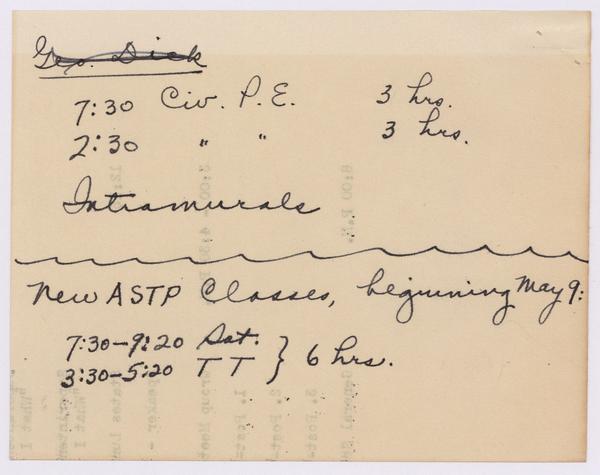 Geo. Dick
7:30 Civ. P.E. 3 hrs.
2:30 " " 3 hrs.
Intramurals
New ASTP Classes, beginning May 9:
7:30-9:20 Sat. } 6 hrs.
3:30-5:20 T T